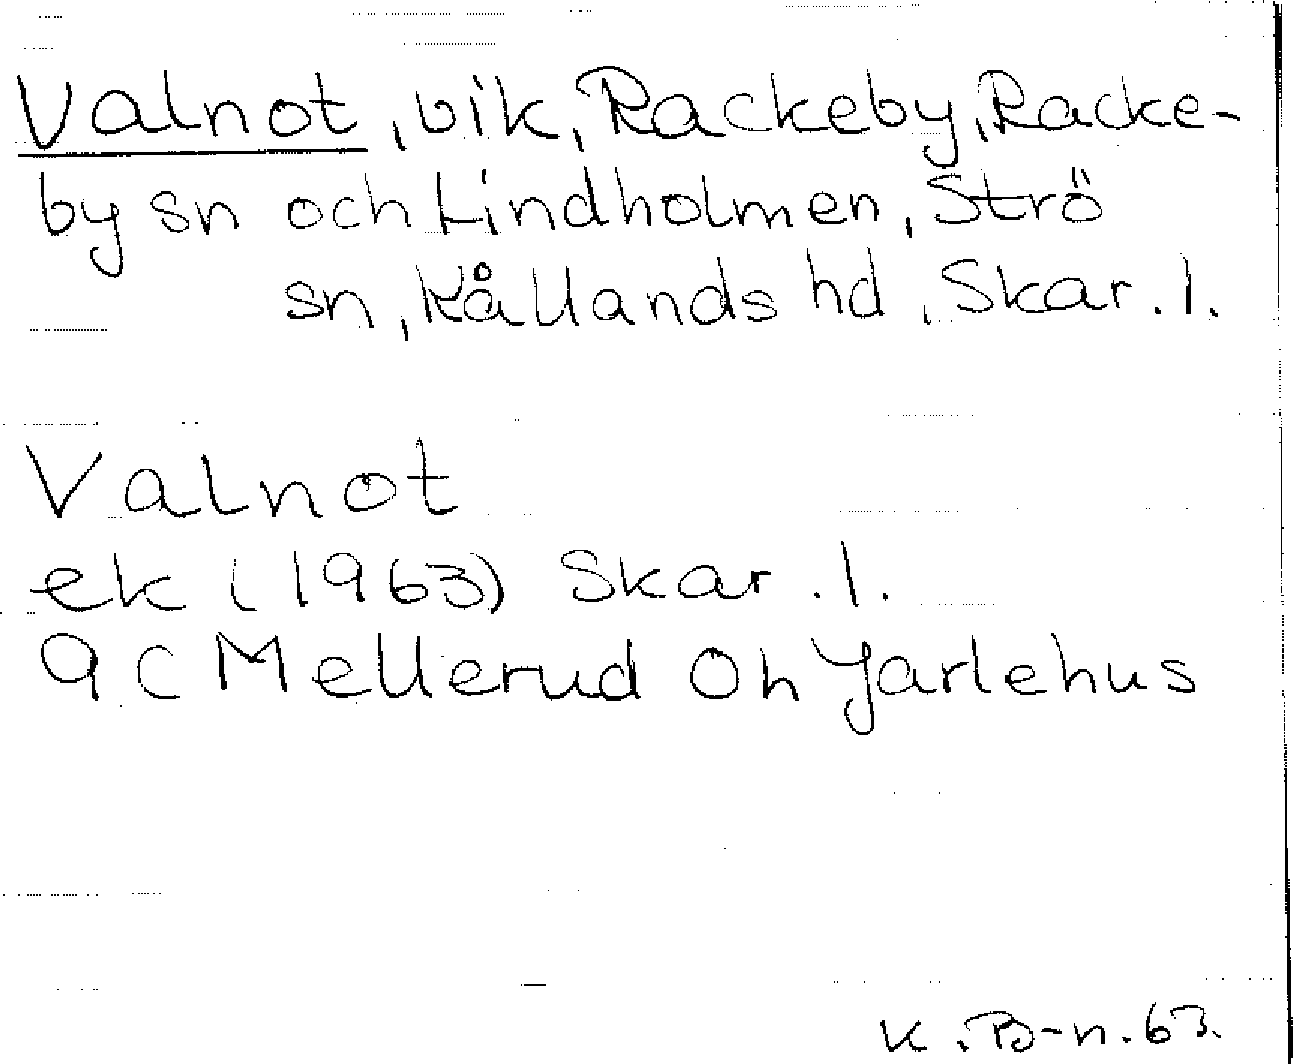 Valnot, vik, Rackeby, Racke-
by sn och Lindholmen, Strö
sn, Kållands hd, Skar. l.
Valnot
ek (1963) Skar. l.
9 C Mellerud Oh Jarlehus
K. B-n. 63.